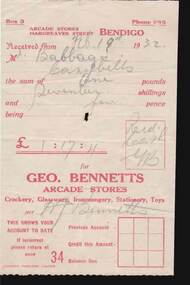 Box 3 Phone 242
ARCADE STORES
HARGREAVES STREET BENDIGO
Feb 19th 1932
Received from
Babbage
Campbells
the sum of One pounds
Seventeen shillings
and pence
being
£ 1:17:
for
GEO. BENNETTS
ARCADE STORES
Crockery, Glassware, Ironmongery, Stationery, Toys
per Bennetts
THIS SHOWS YOUR
ACCOUNT TO DATE
If incorrect
please return at
once
34
Previous Account
Credit this Amount
Balance Due